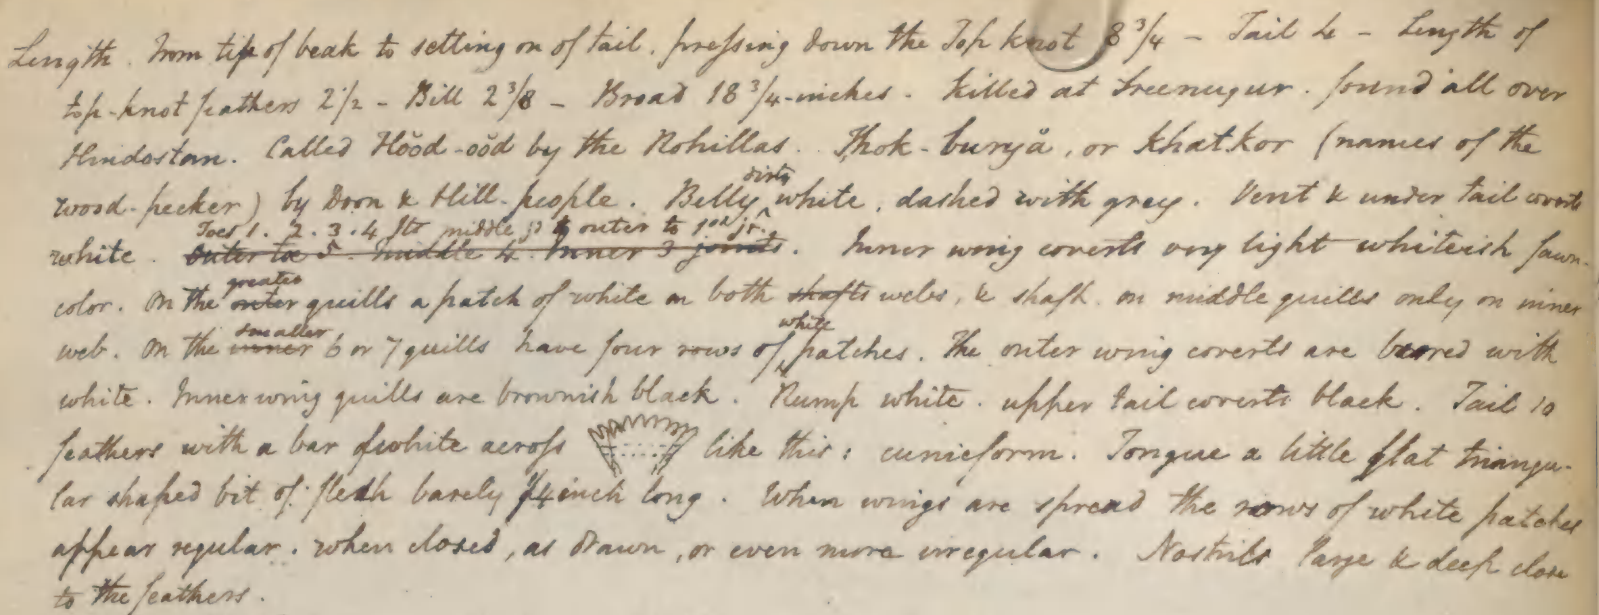 Length. From tip of beak to setting on of tail, pressing down the Top knot 8 3/4 - Tail 4 - Length of
top-knot feathers 2 1/2 - Bill 2 3/8 - Broad 18 3/4 inches. Killed at Sreenugur. found all over
Hindostan. Called Hŏŏd-ŏŏd by the Rohillas. Thok-burya, or Khatkor (names of the
wood-pecker) by Doon & Hill-people. Belly dirty white, dashed with grey. Vent & under tail coverts
Toes 1. 2. 3. 4 middle outer to 1st jt.
white. Outer toe 5. Middle 4. Inner 3 joints. Inner wing coverts very light whiteish fawn-
color. On the outer greater quills a patch of white on both shafts webs, & shaft. on middle quills only on inner
web. On the inner smaller 6 or 7 quills have four rows of white patches. The outer wing coverts are barred with
white. Inner wing quills are brownish black. Rump white. upper tail coverts black. Tail 10
feathers with a bar of white across like this: cuneiform. Tongue a little flat triangu-
lar shaped bit of flesh barely 1/4 inch long. When wings are spread the rows of white patches
appear regular. when closed, as drawn, or even more irregular. Nostrils large & deep close
to the feathers.